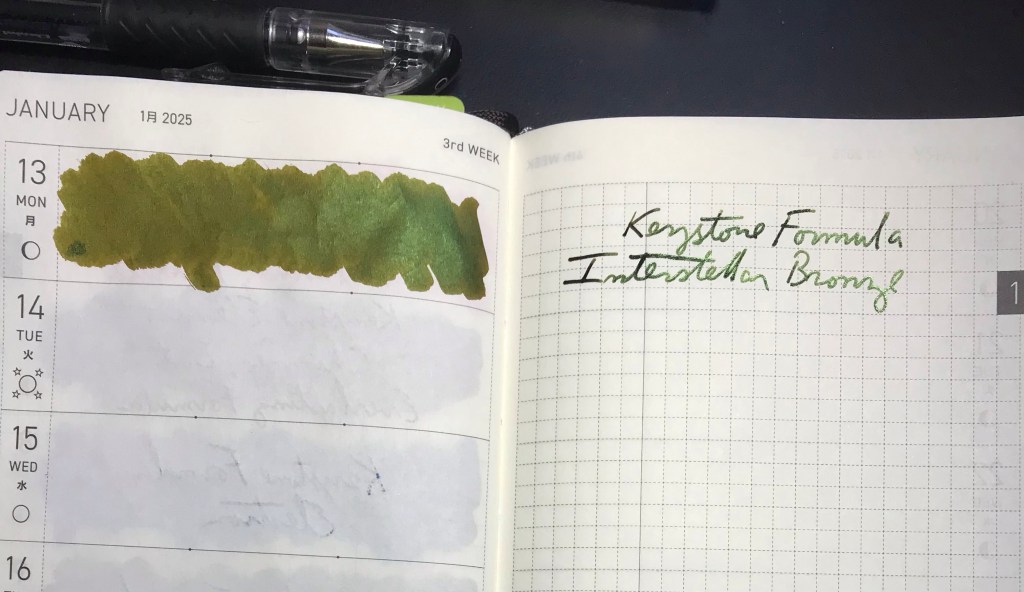 JANUARY 1月 2025
3rd WEEK
13
MON
月
14
TUE
火
15
WED
水
16
Keystone Formula
Interstellar Bronze
1